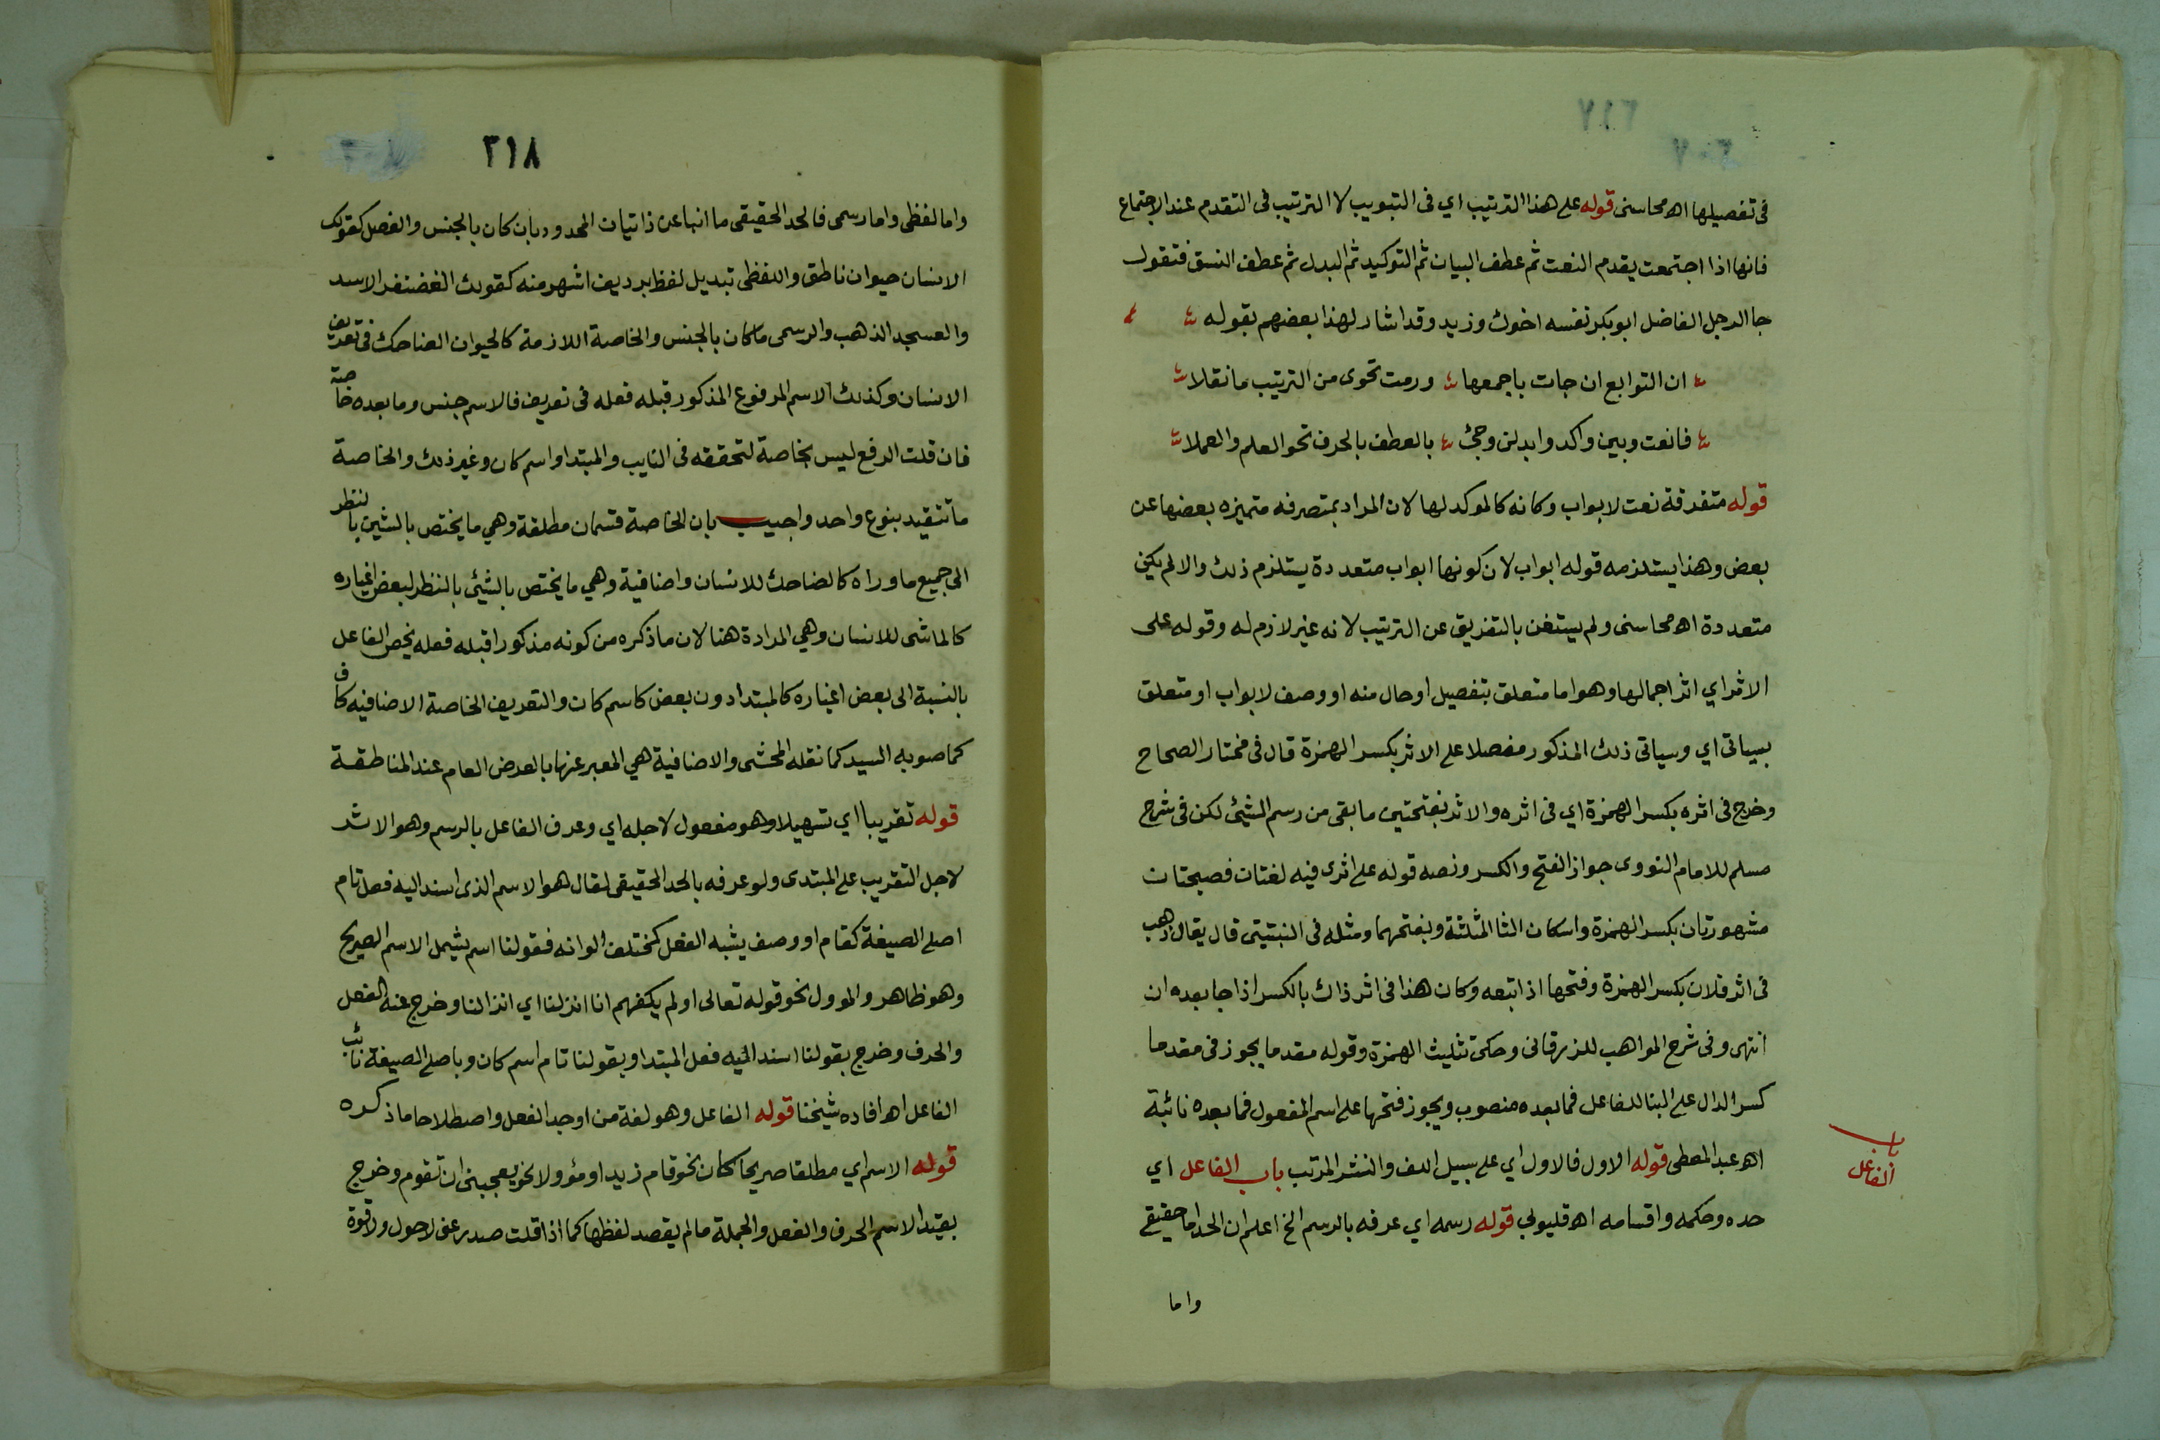 ٣١٧
في تفصيلها اهـ محاسني قوله على هذا الترتيب اي في التبويب لا الترتيب في التقدم عند الاجتماع
فانها اذا اجتمعت يقدم النعت ثم عطف البيان ثم التوكيد ثم البدل ثم عطف النسق فتقول
جا الرجل الفاضل ابو بكر نفسه اخوك وزيد وقد اشار لهذا بعضهم بقوله
ان التوابع ان جات باجمعها ورمت تحوى من الترتيب ما نقلا
فانعت وبين واكد وابدلن وجئ بالعطف بالحرف نحو العلم والعملا
قوله متفرقة نعت لابواب وكانه كالموكد لها لان المراد بمتصرفه متميزه بعضها عن
بعض وهذا يستلزمه قوله ابواب لان كونها ابواب متعددة يستلزم ذلك والا لم يكن
متعددة اهـ محاسني ولم يستغن بالتفريق عن الترتيب لانه غير لازم له وقوله على
الاثر اي اثر اجمالها وهو اما متعلق بتفصيل او حال منه او وصف لابواب او متعلق
بسياتي اي وسياتي ذلك المذكور مفصلا على الاثر بكسر الهمزة قال في مختار الصحاح
وخرج في اثره بكسر الهمزة اي في اثره والاثر بفتحتين ما بقى من رسم الشيئ لكن في شرح
مسلم للامام النووى جواز الفتح والكسر ونصه قوله على اثرى فيه لغتان فصيحتان
مشهورتان بكسر الهمزة واسكان الثا المثلثة وبفتحهما ومثله في النبتيتى قال يقال ذهب
في اثر فلان بكسر الهمزة وفتحها اذا تبعه وكان هذا في اثر ذاك بالكسر اذا جا بعده ان
انتهى وفي شرح المواهب للزرقاني وحكى تثليث الهمزة وقوله مقدما يجوز في مقدما
كسر الدال على البنا للفاعل فما بعده منصوب ويجوز فتحها على اسم المفعول فما بعده نائبة
اهـ عبد المعطى قوله الاول فالاول اي على سبيل اللف والنشر المرتب باب الفاعل اي
حده وحكمه واقسامه اهـ قليوبي قوله رسمه اي عرفه بالرسم الخ اعلم ان الحد اما حقيقي
باب
الفاعل
واما
٣١٨
واما لفظى واما رسمى فالحد الحقيقى ما انبا عن ذاتيات المحدود بان كان بالجنس والفصل كقولك
الانسان حيوان ناطق واللفظى تبديل لفظ برديف اشهر منه كقولك الغضنفر الاسد
والعسجد الذهب والرسمى ما كان بالجنس والخاصة اللازمة كالحيوان الضاحك في تعريف
الانسان وكذلك الاسم المرفوع المذكور قبله فعله في تعريف فالاسم جنس وما بعده خاصة
فان قلت الرفع ليس بخاصة لتحققه في النايب والمبتدا واسم كان وغير ذلك والخاصة
ما تتقيد بنوع واحد واجيب بان الخاصة قسمان مطلقة وهي ما يختص بالشيئ بالنظر
الى جميع ما وراه كالضاحك للانسان واضافية وهي ما يختص بالشيئ بالنظر لبعض اغياره
كالماشى للانسان وهي المرادة هنا لان ما ذكره من كونه مذكورا قبله فعله يخص الفاعل
بالنسبة الى بعض اغياره كالمبتدا دون بعض كاسم كان والتعريف الخاصة الاضافيه كاف
كما صوبه السيد كما نقله المحشى والاضافية هي المعبر عنها بالعرض العام عند المناطقة
قوله تقريبا اي تسهيلا وهو مفعول لاجله اي وعرف الفاعل بالرسم وهو الاثر
لاجل التقريب على المبتدى ولو عرفه بالحد الحقيقى لقال هو الاسم الذى اسند اليه فعل تام
اصلى الصيغة كقام او وصف يشبه الفعل كمختلف الوانه فقولنا اسم يشمل الاسم الصريح
وهو ظاهر والموول نحو قوله تعالى اولم يكفهم انا انزلنا اي انزالنا وخرج عنه الفعل
والحرف وخرج بقولنا اسند اليه فعل المبتدا وبقولنا تام اسم كان وباصلى الصيغة نائب
الفاعل اهـ افاده شيخنا قوله الفاعل وهو لغة من اوجد الفعل واصطلاحا ما ذكره
قوله الاسم اي مطلقا صريحا كان نحو قام زيد او مؤولا نحو يعجبنى ان تقوم وخرج
بقيد الاسم الحرف والفعل والجملة ما لم يقصد لفظها كما اذا قلت صدر عنى لاحول ولاقوة